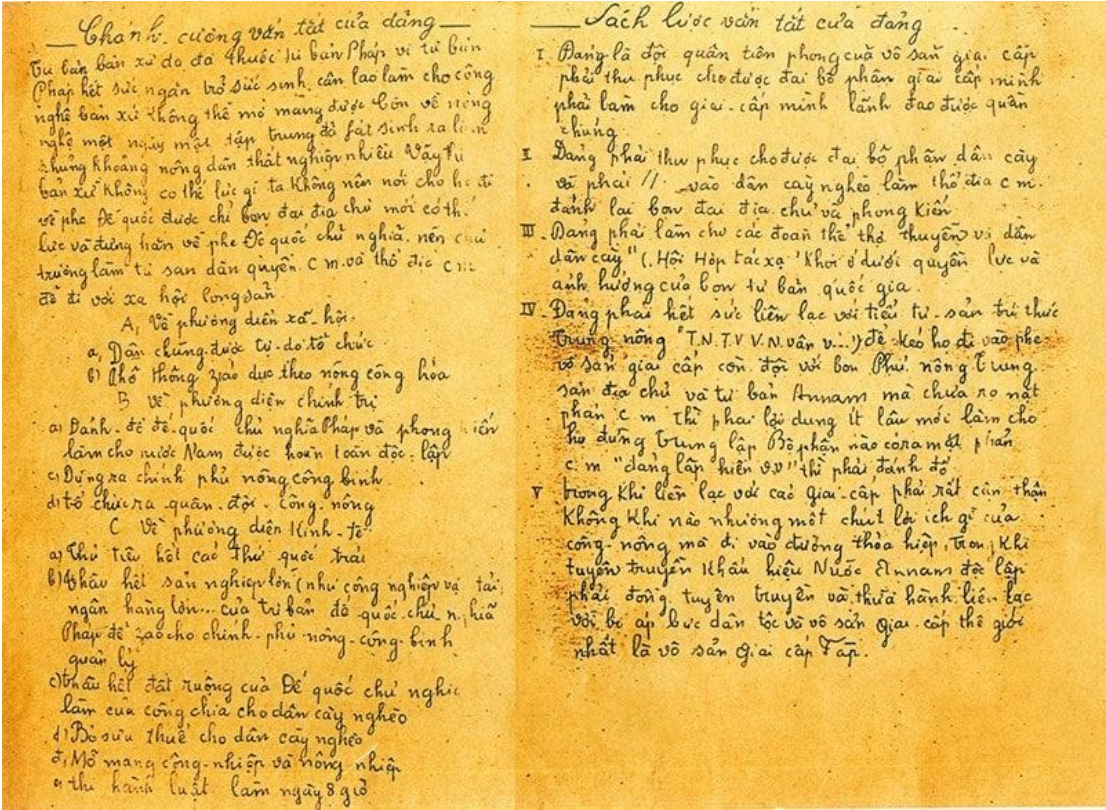 Chánh cương vắn tắt của đảng
Tư bản bản xứ do đã thuộc tư bản Pháp vì tư bản
Pháp hết sức ngăn trở sức sinh, cần lao làm cho công
nghệ bản xứ không thể mở mang được Còn về nông
nghệ một ngày một tập trung đã fát sinh ra
khủng khoảng nông dân thất nghiệp nhiều Vậy tư
bản xứ không có thế lực gì ta không nên nói cho họ đi
về phe Đế quốc được chỉ bọn đại địa chủ mới có thế
lực và đứng hẳn về phe Đế quốc chủ nghĩa. nên chủ
trương làm tư sản dân quyền C m. và thổ địa C m
để đi với xã hội cộng sản
A, Về phương diện xã-hội.
a, Dân chúng được tự-do tổ chức
b) Phổ thông záo dục theo nông công hóa
B về phương diện chính trị
a) Đánh-đổ đế-quốc chủ nghĩa Pháp và phong kiến
làm cho nước Nam được hoàn toàn độc-lập
c) Dựng ra chính phủ nông công binh
d) tổ chức ra quân-đội công-nông
C Về phương diện Kinh-tế
a) Thủ tiêu hết các thứ quốc trái
b) thâu hết sản nghiệp lớn (như công nghiệp vận tải,
ngân hàng lớn... của tư bản đế quốc-chủ nghĩa
Pháp để zao cho chính-phủ nông-công-binh
quản lý
c) thâu hết đất ruộng của Đế quốc chủ nghĩa
làm của công chia cho dân cày nghèo
d) Bỏ sưu thuế cho dân cày nghèo
đ, Mở mang công-nhiệp và nông nhiệp
e, thi hành luật làm ngày 8 giờ
Sách lược vắn tắt của đảng
I. Đảng là đội quân tiên phong của vô sản giai cấp
phải thu phục cho được đại bộ phận giai cấp mình
phải làm cho giai-cấp mình lãnh đạo được quần
chúng
II Đảng phải thu phục cho được đại bộ phận dân cày
và phải // vào dân cày nghèo làm thổ địa c m.
đánh lại bọn đại địa chủ và phong kiến
III Đảng phải làm cho các đoàn thể thợ thuyền và dân
dân cày" (Hội Hợp tác xạ "Khỏi ở dưới quyền lực và
ảnh hưởng của bọn tư bản quốc gia.
IV Đảng phải hết sức liên lạc với tiểu tư-sản trí thức
trung nông "T.N.T.V V.N. vân v...!) để kéo họ đi vào phe
vô sản giai cấp còn đội với bọn Phú nông trung
sản địa chủ và tư bản Annam mà chưa rõ mặt
phản c m thì phải lợi dụng ít lâu mới làm cho
họ đứng trung lập Bộ phận nào córa mặt phản
c.m "đảng lập hiến v.v" thì phải đánh đổ
V trong khi liên lạc với các giai-cấp phải rất cẩn thận
Không khi nào nhường một chút lợi ích gì của
công-nông mà đi vào đường thỏa hiệp, Trong Khi
tuyên truyền khẩu hiệu Nước Annam độc lập
phải đồng tuyên truyền và thưa hành liên lạc
với bị áp bức dân tộc và vô sản giai cấp thế giới
nhất là vô sản giai cấp Fáp.